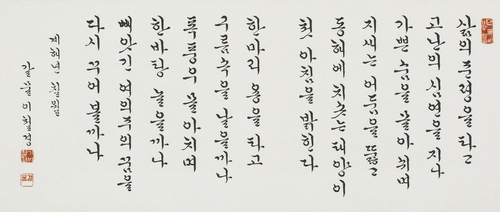 삶의 준령을 타고
고난의 심연을 지나
가쁜 숨을 몰아쉬며
지새는 어둠을 뚫고
동해에 치솟는 태양이
첫 아침을 밝힌다
한마리 용을 타고
구름 속을 날을까나
폭풍우 몰아치며
한바탕 놀을까나
빼앗긴 여의주의 꿈을
다시 꾸어 볼까나